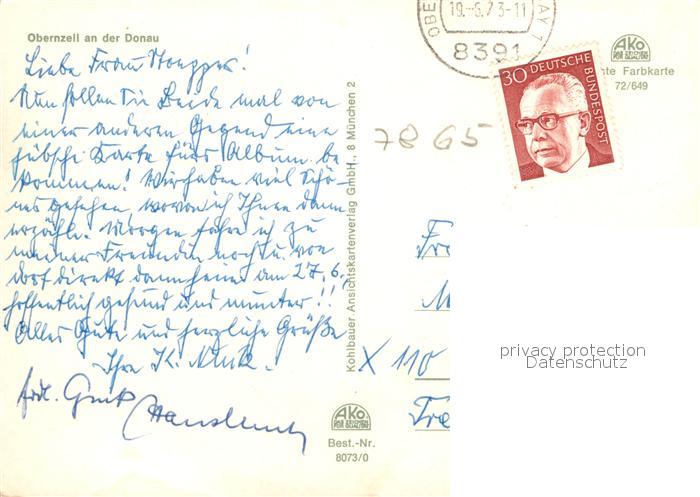 Obernzell an der Donau
Liebe Frau
Nun sollen Sie beide mal von
einer anderen Gegend eine
hübsche Karte fürs Album be-
kommen! Wir haben viel Schö-
nes gesehen wovon ich Ihnen dann
erzähle. Morgen fahre ich zu
meiner Freundin noch u. von
dort direkt dann heim am 27.6.,
hoffentlich gesund und munter!!
Alles Gute und herzliche Grüße
Ihre K.
frdl. Gruß
Kohlbauer Ansichtskartenverlag GmbH., 8 München 2
AKO
Best.-Nr.
8073/0
19.-6.73-11
8391
30 DEUTSCHE BUNDESPOST
AKO
hte Farbkarte
72/649
7865
Fr
M
X 110
Fre
privacy protection
Datenschutz